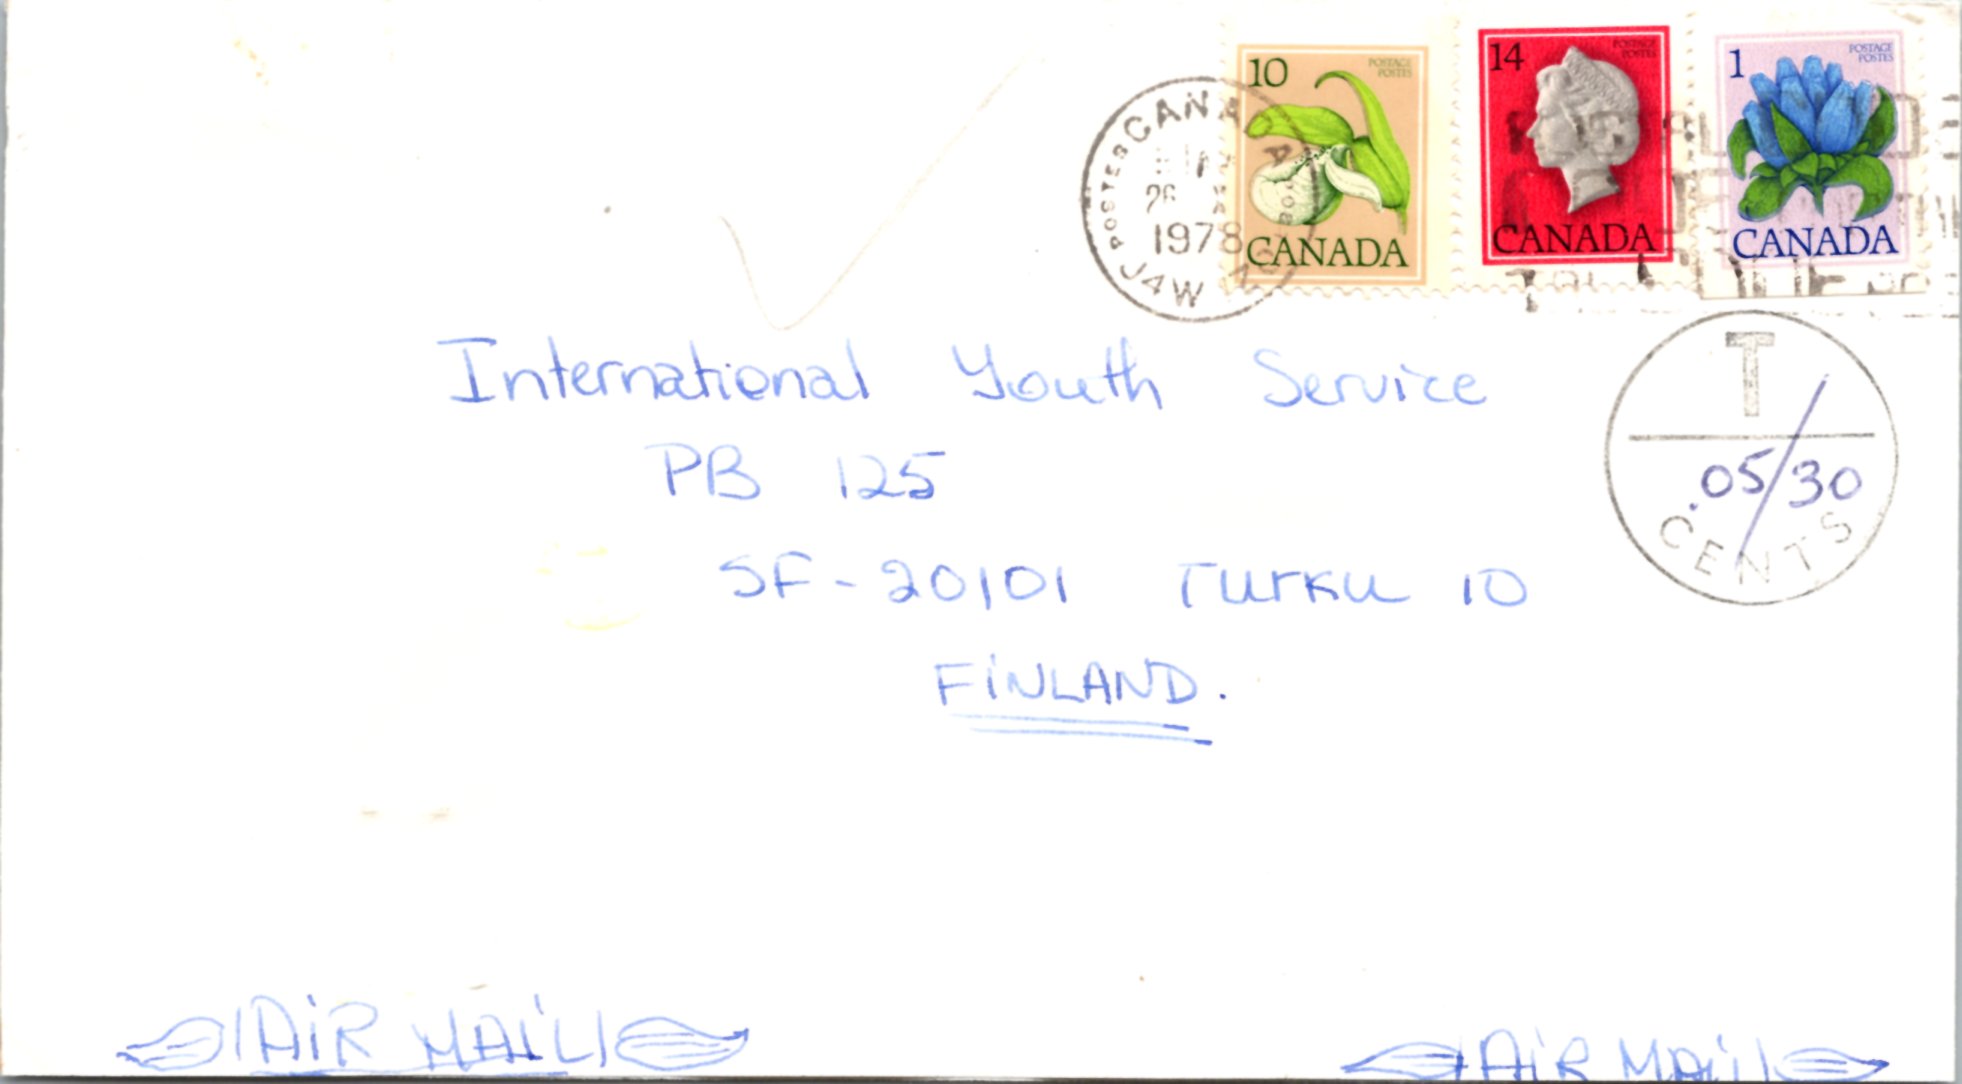 10 POSTAGE POSTES CANADA
14 POSTAGE POSTES CANADA
1 POSTAGE POSTES CANADA
POSTES CANADA
26
1978
J4W
International Youth Service
PB 125
SF-20101 Turku 10
FINLAND.
T
.05/30
CENTS
AIR MAIL
AIR MAIL